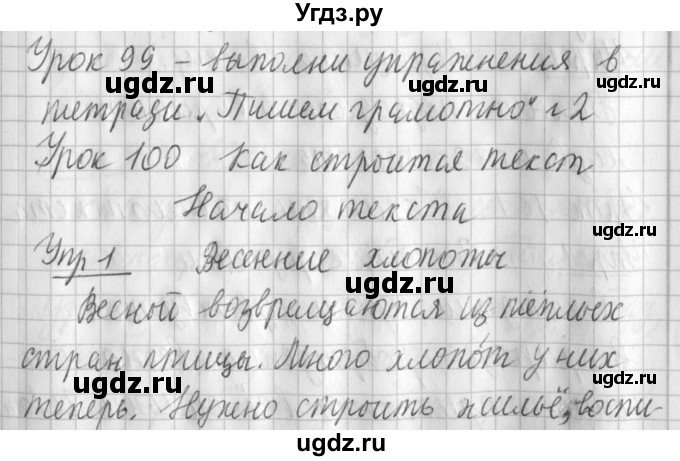 Угдз.ру
Урок 99 - выполни упражнения в
тетради "Пишем грамотно" №2
Урок 100 Как строится текст
Начало текста
Упр 1 Весенние хлопоты
Весной возвращаются из тёплых
стран птицы. Много хлопо́т у них
теперь. Нужно строить жильё, воспи-
ugdz.ru
ugdz.ru
ugdz.ru
ugdz.ru
ugdz.ru
ugdz.ru
ugdz.ru
ugdz.ru
ugdz.ru
ugdz.ru
ugdz.ru